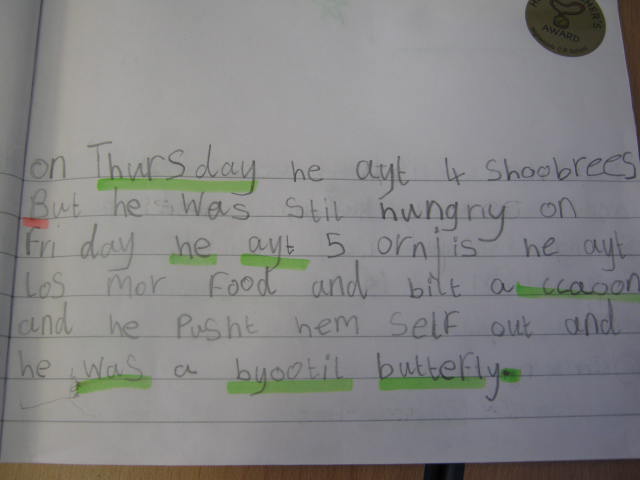 HER'S
AWARD
on Thursday he ayt 4 shoobrees
But he was stil hungry on
Friday he ayt 5 ornjis he ayt
los mor food and bilt a ccaoon
and he pusht hem self out and
he was a byootil butterfly.